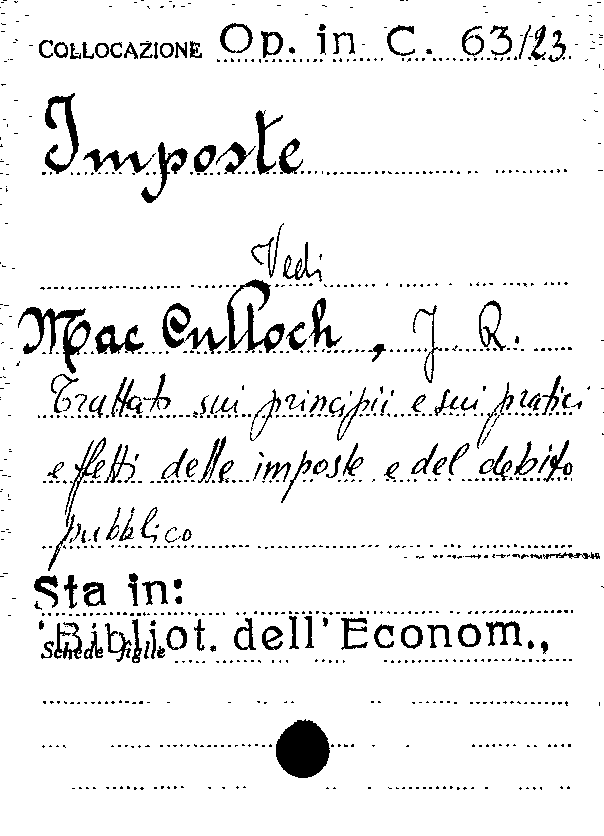 COLLOCAZIONE Op. in C. 63/23
Imposte
Vedi
Mac Culloch, J. R.
Trattato sui principii e sui pratici
effetti delle imposte e del debito
pubblico
Sta in:
Bibliot. dell'Econom.,
Schede figlie